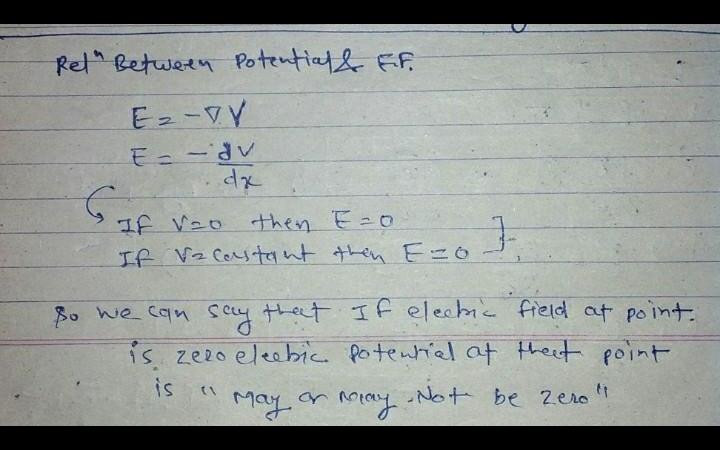 Relⁿ Between Potential & E.F.
E = -∇V
E = -dV/dx
If V=0 then E=0
If V=constant then E=0
So we can say that If electric field at point.
is zero electric potential at that point
is "may or may Not be zero"